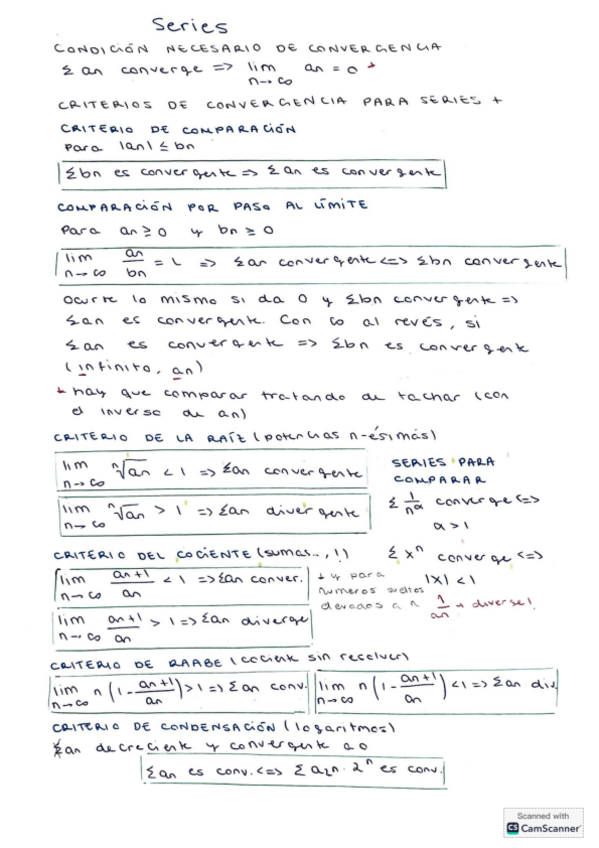 Series
CONDICIÓN NECESARIO DE CONVERGENCIA
Σ an converge => lim n→∞ an = 0 *
CRITERIOS DE CONVERGENCIA PARA SERIES +
CRITERIO DE COMPARACIÓN
Para |an| ≤ bn
Σbn es convergente => Σan es convergente
COMPARACIÓN POR PASO AL LÍMITE
Para an ≥ 0 y bn ≥ 0
lim n→∞ an/bn = L => Σan convergente <=> Σbn convergente
Ocurre lo mismo si da 0 y Σbn convergente =>
Σan es convergente. Con ∞ al revés, si
Σan es convergente => Σbn es convergente
(infinito, an)
* hay que comparar tratando de tachar (con
el inverso de an)
CRITERIO DE LA RAÍZ (potencias n-ésimas)
lim n→∞ ⁿ√an < 1 => Σan convergente
lim n→∞ ⁿ√an > 1 => Σan divergente
SERIES PARA
COMPARAR
Σ 1/n^α converge <=>
α > 1
Σ xⁿ converge <=>
|x| < 1
CRITERIO DEL COCIENTE (sumas.., !)
lim n→∞ an+1/an < 1 => Σan conver.
lim n→∞ an+1/an > 1 => Σan diverge
* y para
números sueltos
elevados a n
1/an → diverge!
CRITERIO DE RAABE (cociente sin resolver)
lim n→∞ n(1 - an+1/an) > 1 => Σan conv.
lim n→∞ n(1 - an+1/an) < 1 => Σan div.
CRITERIO DE CONDENSACIÓN (logaritmos)
Σan decreciente y convergente a 0
Σan es conv. <=> Σ a2n · 2ⁿ es conv.
Scanned with
CS CamScanner